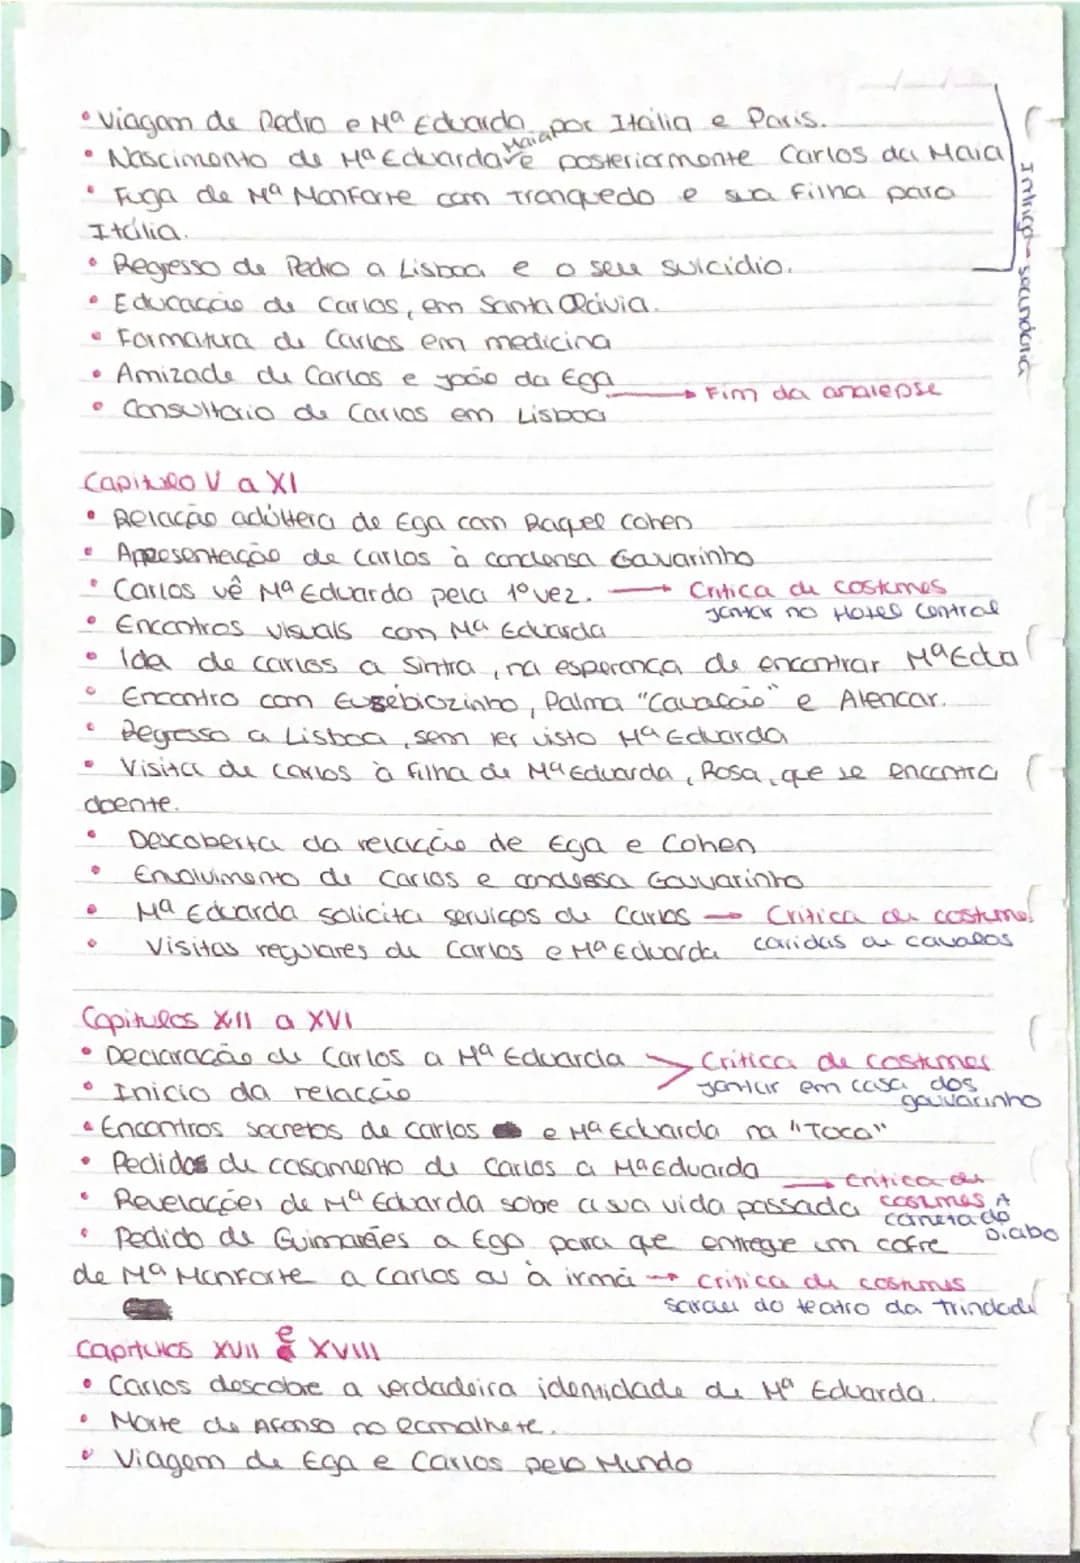 • Viagem de Pedro e Mª Eduarda por Itália e Paris.
• Nascimento de Mª Eduarda Maia e posteriormente Carlos da Maia
• Fuga de Mª Monforte com Tranquedo e sua filha para
Itália.
Intriga secundária
• Regresso de Pedro a Lisboa e o seu suicídio.
• Educação de Carlos, em Santa Olávia.
• Formatura de Carlos em medicina
• Amizade de Carlos e João da Ega
→ Fim da analepse
• Consultório de Carlos em Lisboa
Capítulo V a XI
• Relação adúltera de Ega com Raquel Cohen
• Apresentação de Carlos à condensa Gauvarinho
• Carlos vê Mª Eduarda pela 1º vez. → Crítica de costumes
jantar no Hotel Central
• Encontros visuais com Mª Eduarda
• Ida de Carlos a Sintra, na esperança de encontrar Mª Eda
• Encontro com Eusébiozinho, Palma "Cavacão" e Alencar.
• Regresso a Lisboa, sem ter visto Mª Eduarda
• Visita de Carlos à filha de Mª Eduarda, Rosa, que se encontra
doente.
• Descoberta da relacção de Ega e Cohen
• Envolvimento de Carlos e condessa Gouvarinho
• Mª Eduarda solicita serviços de Carlos → Crítica de costumes
• Visitas regulares de Carlos e Mª Eduarda corridas de cavalos
Capítulos XII a XVI
• Declaração de Carlos a Mª Eduarda > Crítica de costumes
jantar em casa dos
gouvarinho
• Início da relacção
• Encontros secretos de Carlos e Mª Eduarda na "Toca"
• Pedidos de casamento de Carlos a Mª Eduarda
→ critica de
costumes A
corneta do
Diabo
• Revelações de Mª Eduarda sobre a sua vida passada
• Pedido de Guimarães a Ega para que entregue um cofre
de Mª Monforte a Carlos ou à irmã → critica de costumes
sarau do teatro da Trindade
Capítulos XVII e XVIII
• Carlos descobre a verdadeira identidade de Mª Eduarda.
• Morte de Afonso no Ramalhete.
• Viagem de Ega e Carlos pelo Mundo